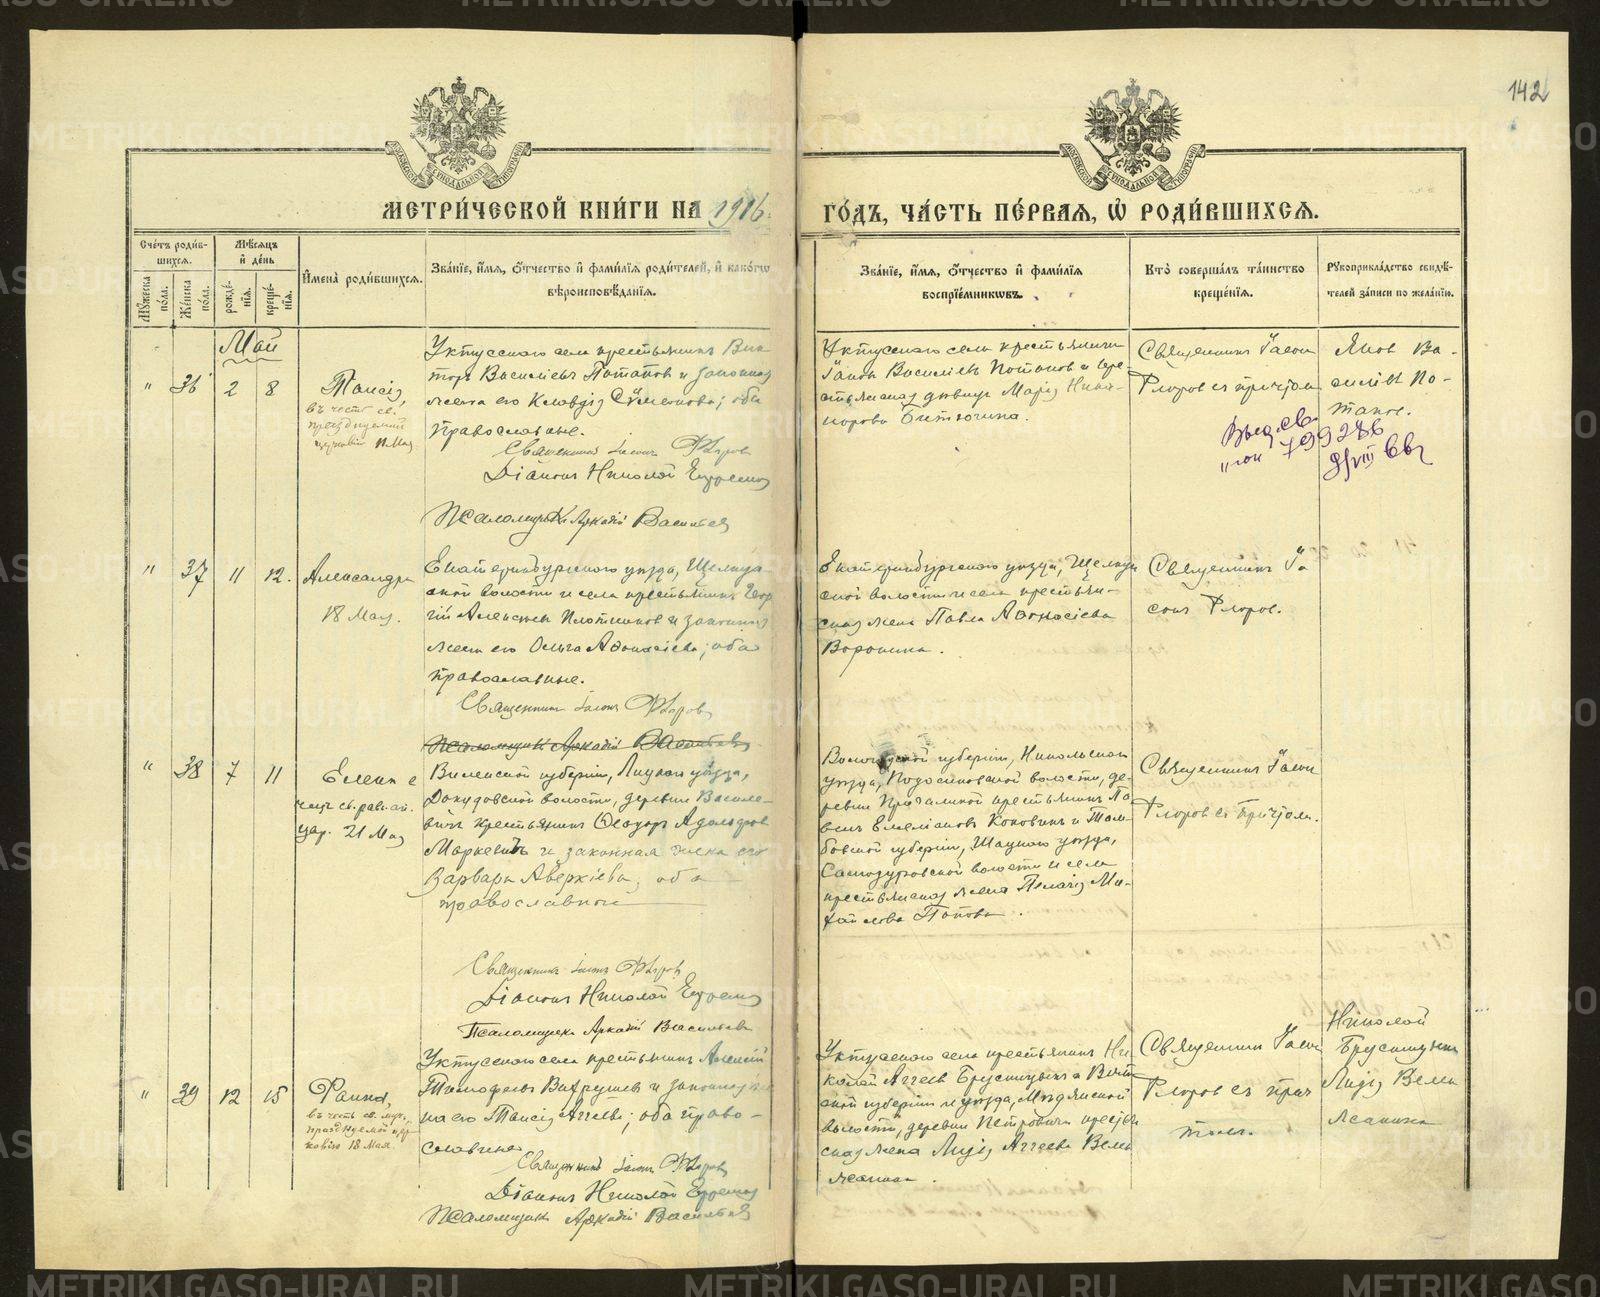 142
МЕТРИ́ЧЕСКОЙ КНИ́ГИ НА 1916
ГО́ДЪ, ЧА́СТЬ ПЕ́РВАЯ, Ѡ РОДИ́ВШИХСЯ.
Сче́тъ роди́в-
шихся.
Мѣ́сяцъ
и҆ де́нь
Му́жеска по́ла.
Же́нска по́ла.
рожде́-нїя.
креще́-нїя.
И҆мена̀ роди́вшихся.
Зва́нїе, и҆́мя, ѻ҆́тчество и҆ фами́лїя роди́телей, и҆ како́гѡ
вѣроисповѣ́данїя.
Зва́нїе, и҆́мя, ѻ҆́тчество и҆ фами́лїя
воспрїе́мниковъ.
Кто̀ соверша́лъ та́инство
креще́нїя.
Рукоприкла́дство свидѣ́-
телей за́писи по жела́нїю.
Май
" 36 2 8
Таисія,
въ честь св.
празднуемой
церковію 10 Мая
Уктусскаго села крестьянинъ Вик-
торъ Василіевъ Потаповъ и законная
жена его Клавдія Сѵмеонова; оба
православные.
Священникъ Іасонъ Флоровъ
Діаконъ Николай
Псаломщикъ Аркадій Васильевъ
Уктусскаго села крестьянинъ
Василіевъ Потаповъ и кре-
стьянская дѣвица Марія Ника-
норова
Священникъ Іасонъ
Флоровъ съ причтомъ
Яковъ Ва-
силіевъ По-
таповъ.
Выд. св.
" 37 11 12.
Александра
18 Мая.
Екатеринбургскаго уѣзда, Щелкун-
ской волости и села крестьянинъ Геор-
гій Алексѣевъ Плотниковъ и законная
жена его Ольга Аѳанасіева; оба
православные.
Священникъ Іасонъ Флоровъ
Псаломщикъ Аркадій Васильевъ
Екатеринбургскаго уѣзда, Щелкун-
ской волости и села крестьян-
ская жена Павла Аѳанасіева
Воронина.
Священникъ Іа
сонъ Флоровъ.
" 38 7 11
Елена в
честь св. равноап.
цар. 21 Мая
Виленской губерніи, Лидскаго уѣзда,
Докудовской волости, деревни Василе-
вичъ крестьянинъ Ѳеодоръ Адольфовъ
Маркевичъ и законная жена его
Варвара Аверкіева, оба
православной
Священникъ Іасонъ Флоровъ
Діаконъ Николай
Псаломщикъ Аркадій Васильевъ
Вологодской губерніи, Никольскаго
уѣзда, Подосиновской волости, де-
ревни крестьянинъ Па-
велъ Емеліановъ и Там-
бовской губерніи, Шацкаго уѣзда,
волости и села
крестьянская жена Пелагія Ми-
хайлова Попова.
Священникъ Іасонъ
Флоровъ съ причтомъ.
" 39 12 15
Фаина,
въ честь св. муч.,
празднуемой цер-
ковію 18 Мая.
Уктусскаго села крестьянинъ Алексій
Тимофеевъ Вахрушевъ и законная же-
на его Таисія Аггеева; оба право-
славные.
Священникъ Іасонъ Флоровъ
Діаконъ Николай
Псаломщикъ Аркадій Васильевъ
Уктусскаго села крестьянинъ Ни-
колай Аггеевъ Брусницынъ и Вят-
ской губерніи и уѣзда, Мѣдянской
волости, деревни Петровичи крестьян-
ская жена Лидія Аггеева Вель
Священникъ Іасонъ
Флоровъ съ прич
томъ.
Николай
Брусницынъ
Лидія Вель
METRIKI.GASO-URAL.RU